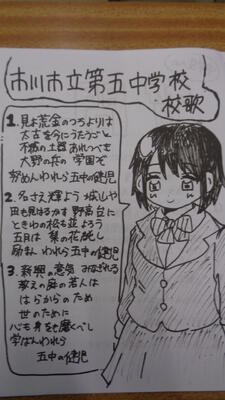 市川市立第五中学校
校歌
1. 見よ黄金のつちよりは
太古を今にうたうごと
不極の土器 あれいづる
大野の丘の 学園ぞ
努めんわれら 五中の健児
2. 名さえ輝よう 城山や
田も見はるかす 野高台に
ときわの松も並よろう
五月は 梨の花咲し
励まんわれら 五中の健児
3. 新興の意気 みなぎれる
教えの庭の若人は
はらからのため
世のために
心も身をも磨くべし
学ばんわれら
五中の健児